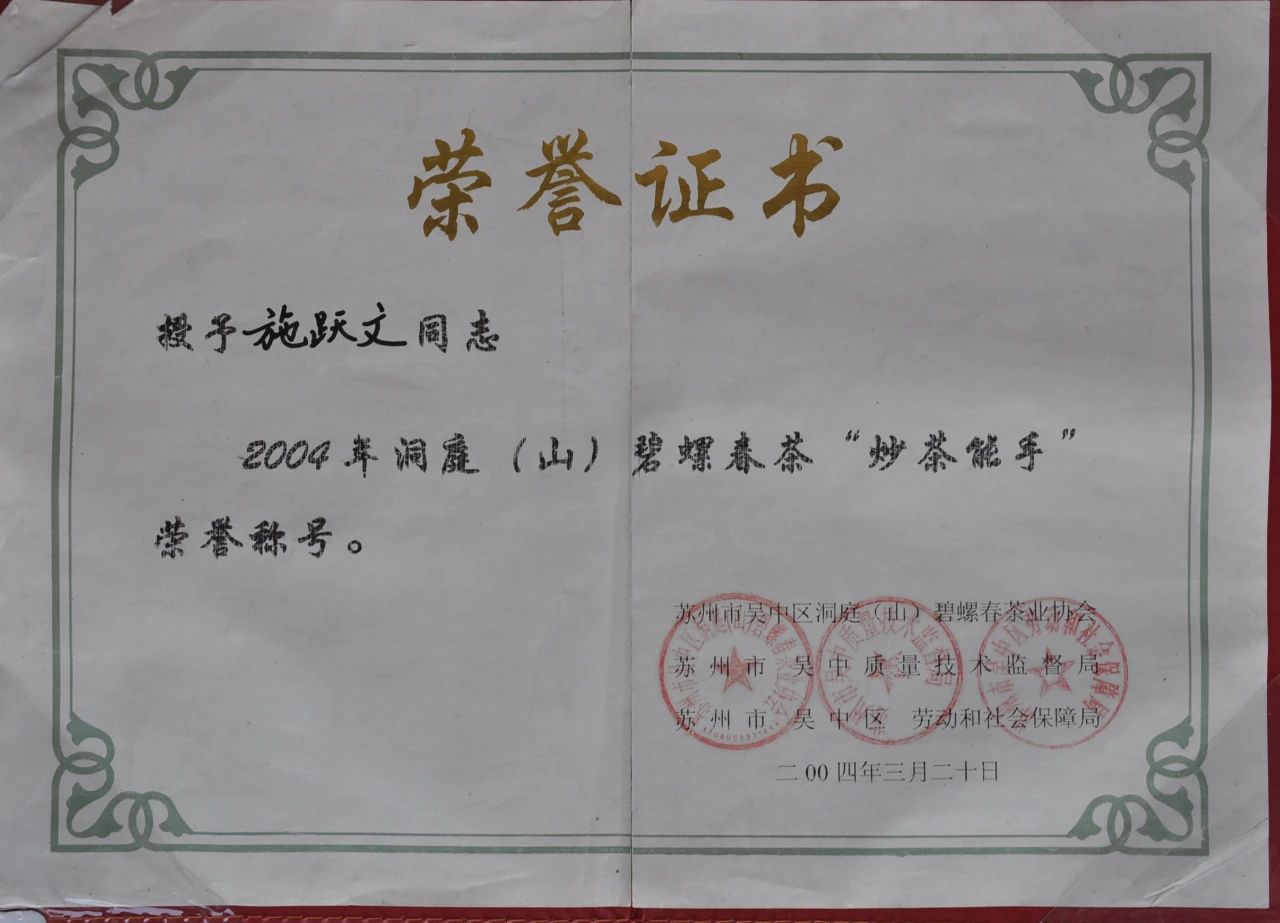 荣誉证书
授予施跃文同志
2004年洞庭（山）碧螺春茶“炒茶能手”
荣誉称号。
苏州市吴中区洞庭（山）碧螺春茶业协会
苏州市 吴中质量技术监督局
苏州市 吴中区 劳动和社会保障局
二00四年三月二十日